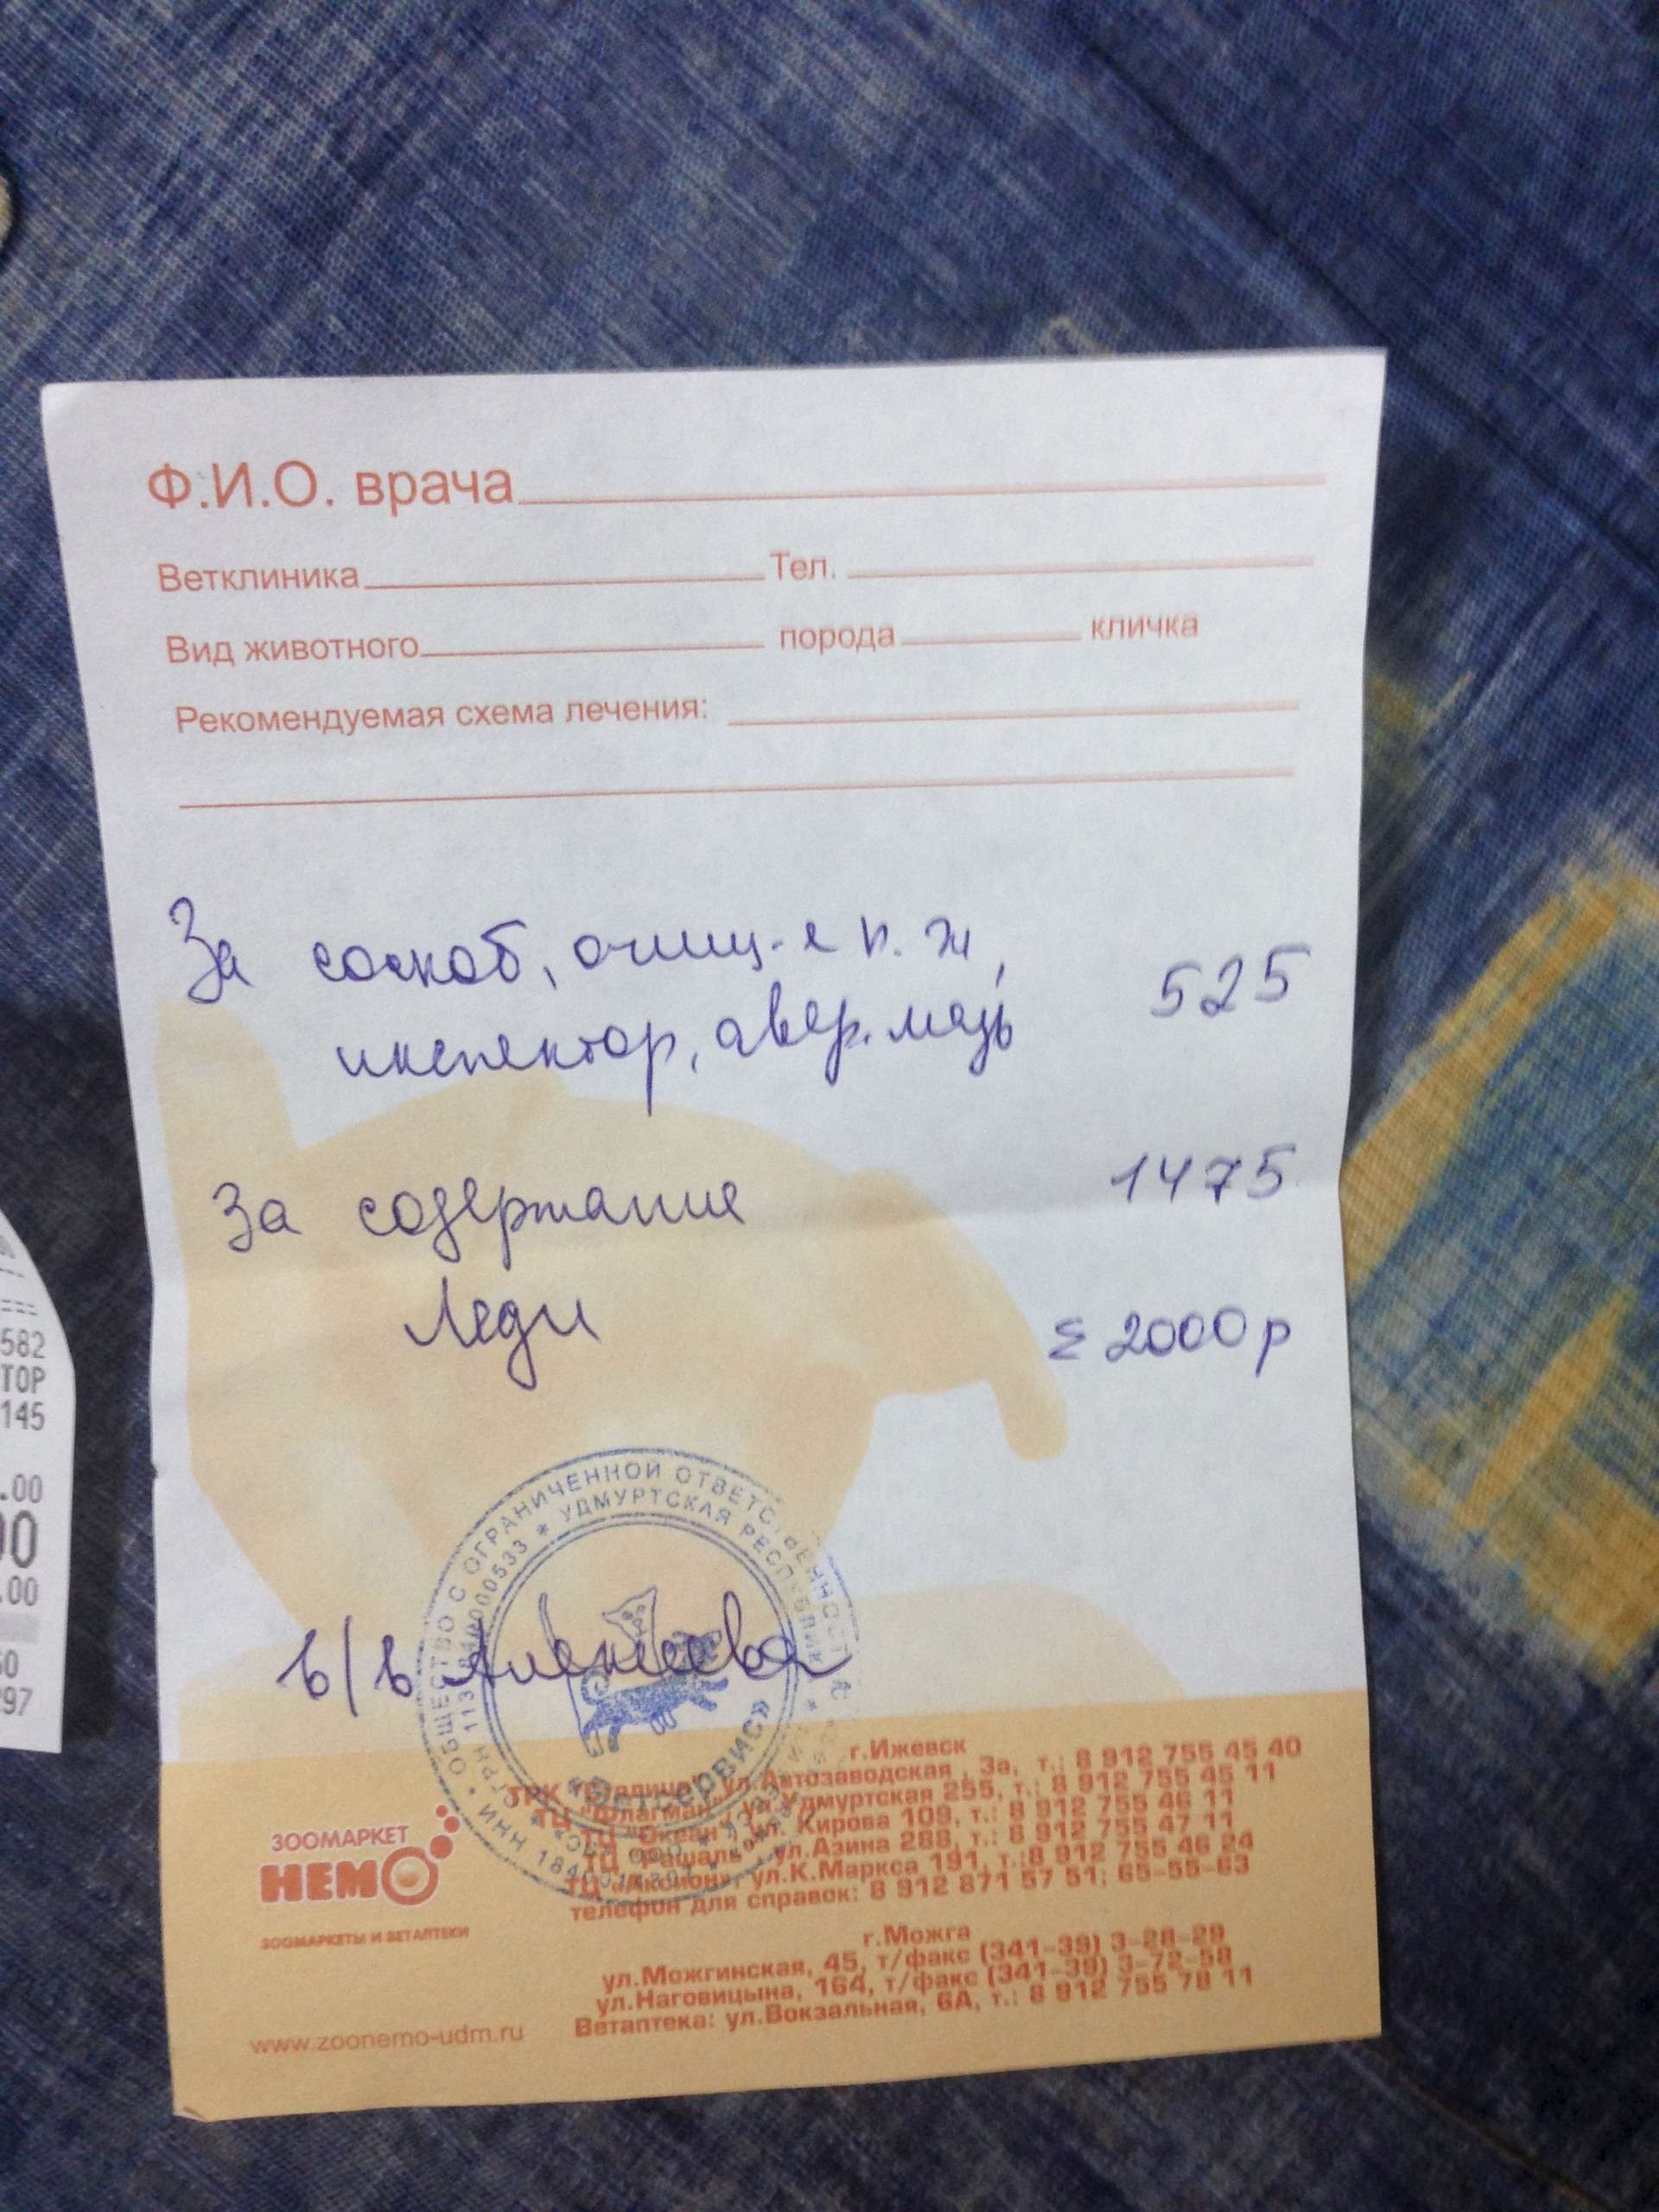 Ф.И.О. врача
Ветклиника Тел.
Вид животного порода кличка
Рекомендуемая схема лечения:
За соскоб, очищ-е п. ж, 525
инспектор, авер. мазь
За содержание 1475
Леди
Σ 2000 р
ОБЩЕСТВО С ОГРАНИЧЕННОЙ ОТВЕТСТВЕННОСТЬЮ
УДМУРТСКАЯ РЕСПУБЛИКА
в/в Алексеева
«Ветсервис»
г.Ижевск
ул.Автозаводская, 3а, т.: 8 912 755 45 40
ТЦ "Флагман", ул.Удмуртская 255, т.: 8 912 755 45 11
ТЦ "Океан", ул. Кирова 109, т.: 8 912 755 46 11
ул.Азина 288, т.: 8 912 755 47 11
ТЦ «Аксион», ул.К.Маркса 191, т.:8 912 755 46 24
телефон для справок: 8 912 871 57 51; 65-55-63
ЗООМАРКЕТ
НЕМО
ЗООМАРКЕТЫ И ВЕТАПТЕКИ
г.Можга
ул.Можгинская, 45, т/факс (341-39) 3-28-29
ул.Наговицына, 164, т/факс (341-39) 3-72-58
Ветаптека: ул.Вокзальная, 6А, т.: 8 912 755 78 11
www.zoonemo-udm.ru
582
ТОР
145
.00
00
.00
50
97